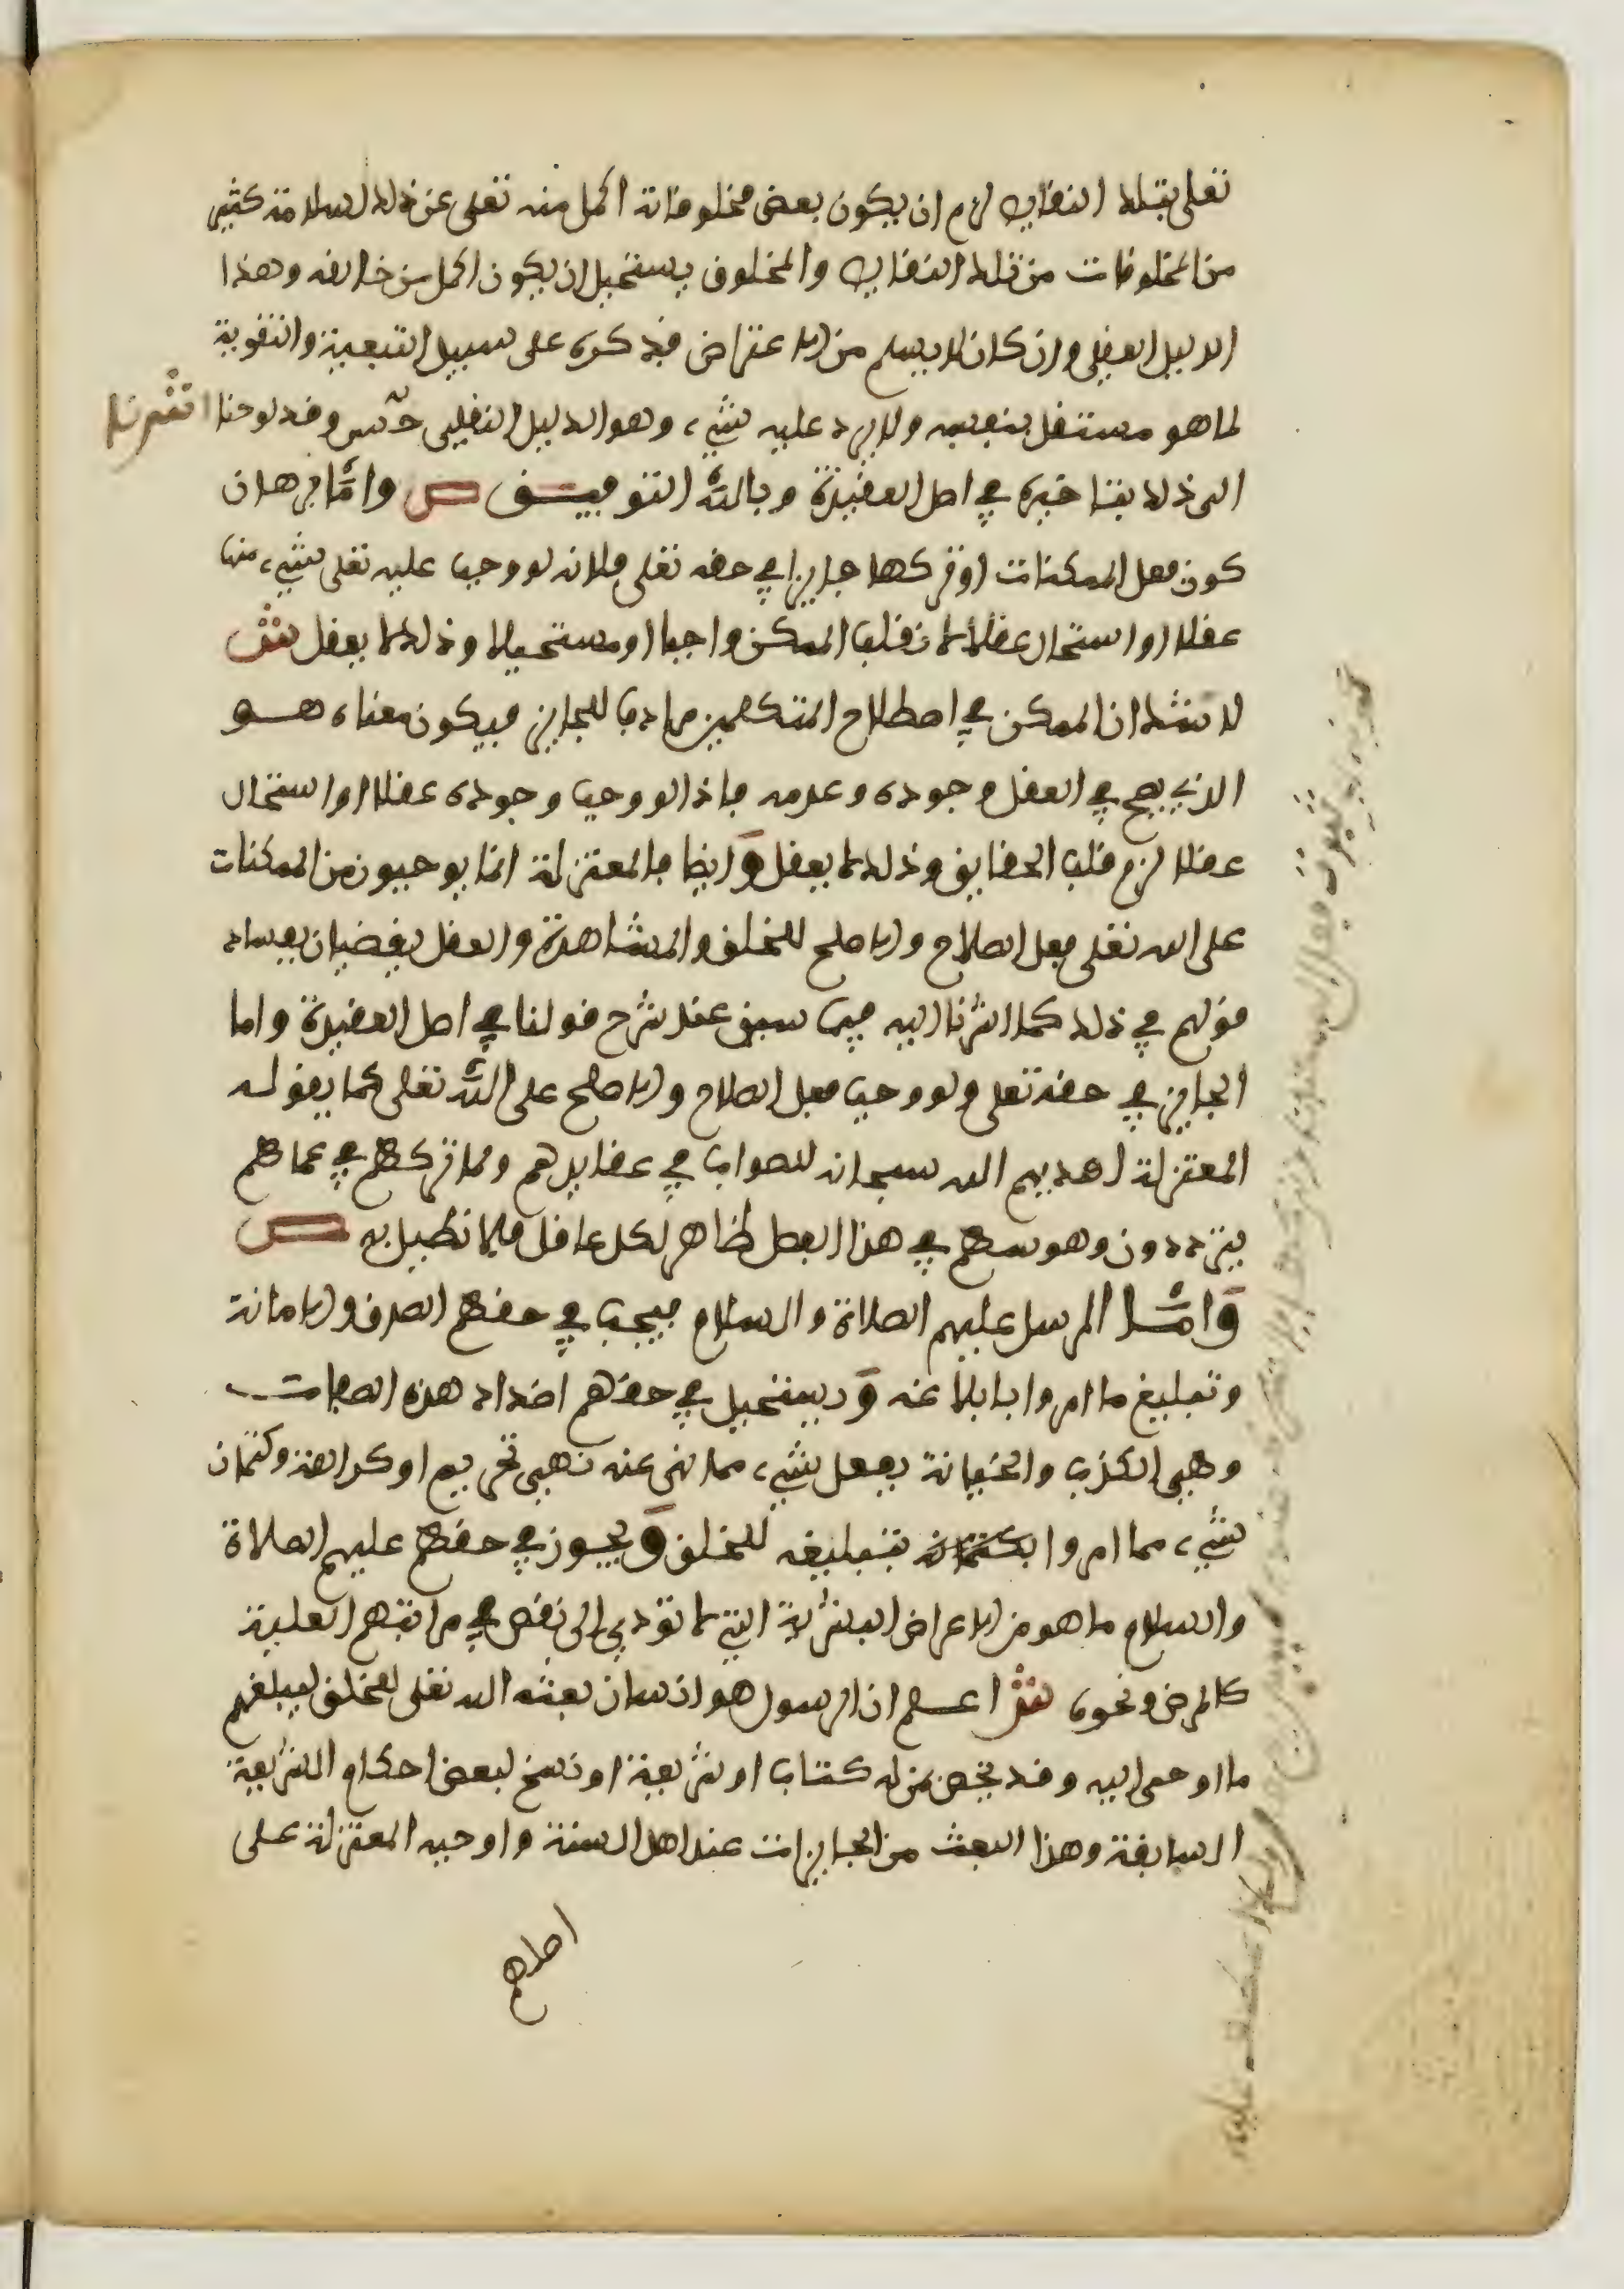 تعلى بتلك النقايص لزم ان يكون بعض مخلوقاته اكمل منه تعلى عن ذلك لسلامة كثير
من المخلوقات من تلك النقايص والمخلوق يستحيل ان يكون اكمل من خالقه وهذا
الدليل العقلي وان كان لا يسلم من الاعتراض فذكره على سبيل التبعية والتقوية
لما هو مستقل بنفسه ولا يرد عليه شيء وهو الدليل النقلي حسن وقد لوحنا اشرنا
الى ذلك بتاخيره في اصل العقيدة وبالله التوفيق ص واما برهان
كون فعل الممكنات او تركها جايزا في حقه تعلى فلانه لو وجب عليه تعلى شيء منها
عقلا او استحال عقلا لانقلب الممكن واجبا او مستحيلا وذلك لا يعقل ش
لا شك ان الممكن في اصطلاح المتكلمين مرادف للجايز فيكون معناه هو
الذي يصح في العقل وجوده وعدمه فاذا لو وجب وجوده عقلا او استحال
عقلا لزم قلب الحقايق وذلك لا يعقل وايضا فالمعتزلة انما يوجبون من الممكنات
على الله تعلى فعل الصلاح والاصلح للخلق والمشاهدة والعقل يقضيان بفساد
قولهم في ذلك كما اشرنا اليه فيما سبق عند شرح قولنا في اصل العقيدة واما
الجايز في حقه تعلى ولو وجب فعل الصلاح والاصلح على الله تعلى كما يقوله
المعتزلة لهديهم الله سبحانه للصواب في عقايدهم ولما تركهم في عماهم
يترددون وهوسهم في هذا الفصل ظاهر لكل عاقل فلا نطيل به ص
واما الرسل عليهم الصلاة والسلام فيجب في حقهم الصدق والامانة
وتبليغ ما امروا بابلاغه ويستحيل في حقهم اضداد هذه الصفات
وهي الكذب والخيانة بفعل شيء مما نهى عنه نهي تحريم او كراهة وكتمان
شيء مما امروا بتبليغه للخلق ويجوز في حقهم عليهم الصلاة
والسلام ما هو من الاعراض البشرية التي لا تؤدي الى نقص في مراتبهم العلية
كالمرض ونحوه ش اعلم ان الرسول هو انسان بعثه الله تعلى للخلق ليبلغهم
ما اوحى اليه وقد يخص بمن له كتاب او شريعة او نسخ لبعض احكام الشريعة
السابقة وهذا البعث من الجايزات عند اهل السنة واوجبه المعتزلة على
اصلهم